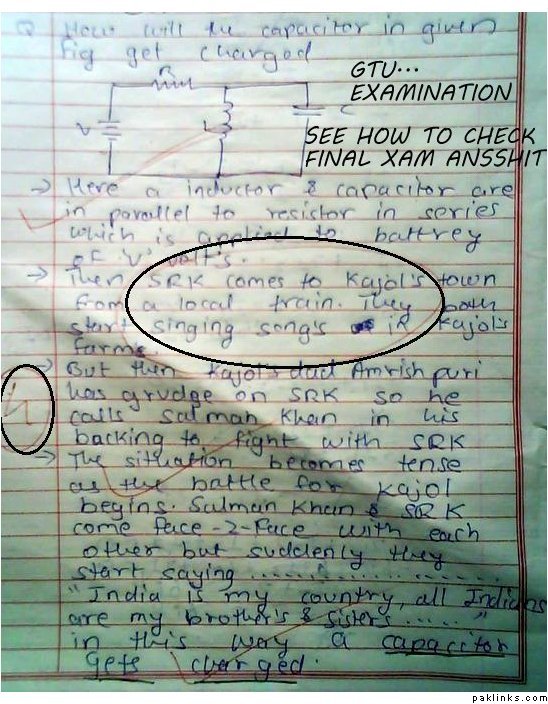 Q How will the capacitor in given
fig get charged
R
GTU...
EXAMINATION
V
L
C
SEE HOW TO CHECK
FINAL XAM ANSSHIT
→ Here a inductor & capacitor are
in parallel to resistor in series
which is applied to battrey
of 'V' volt's.
→ Then SRK comes to Kajol's town
from a local train. They both
start singing song's in Kajol's
farms.
→ But then Kajol's dad Amrish puri
has grudge on SRK so he
calls Salman Khan in his
backing to fight with SRK
→ The situation becomes tense
as the battle for Kajol
begins. Salman Khan & SRK
come face-2-face with each
other but suddenly they
start saying ..................
"India is my country, all Indians
are my brother's & sisters ......"
in this way a capacitor
gets charged.
paklinks.com